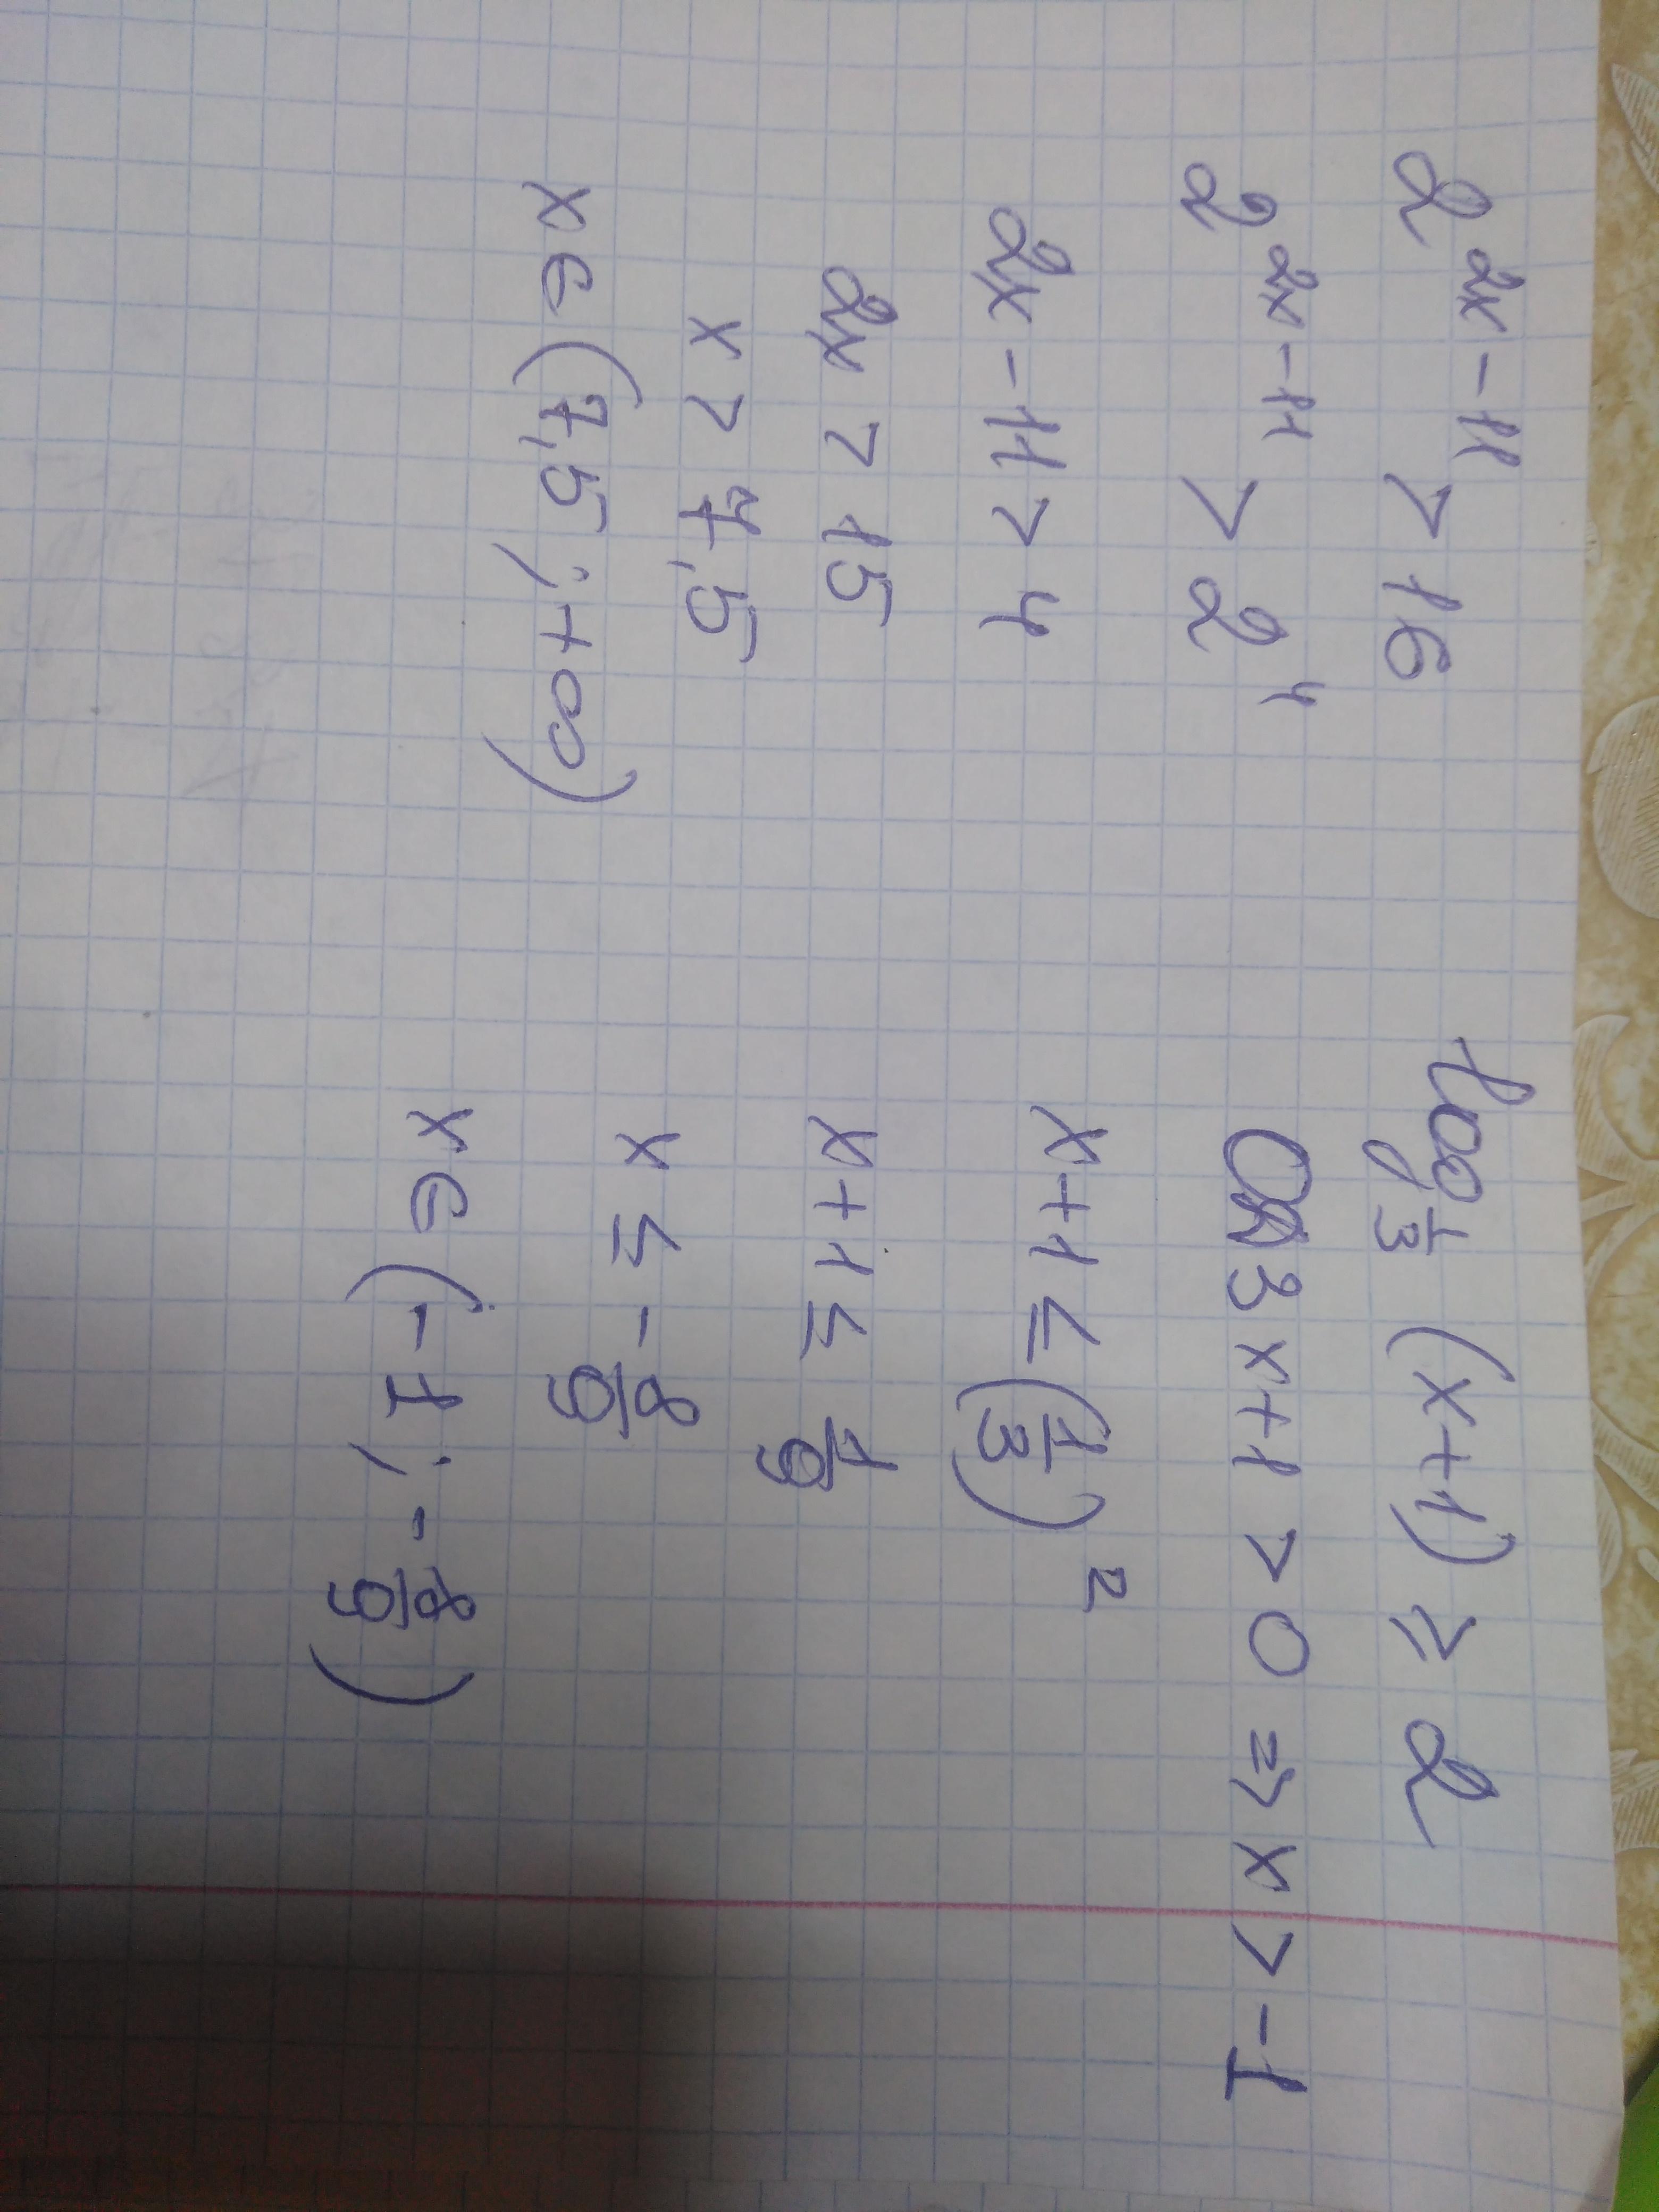 2^{2x-11} > 16
2^{2x-11} > 2^4
2x-11 > 4
2x > 15
x > 7,5
x ∈ (7,5 ; +∞)
log_{1/3} (x+1) ≥ 2
ОДЗ x+1 > 0 => x > -1
x+1 ≤ (1/3)^2
x+1 ≤ 1/9
x ≤ -8/9
x ∈ (-1 ; -8/9)